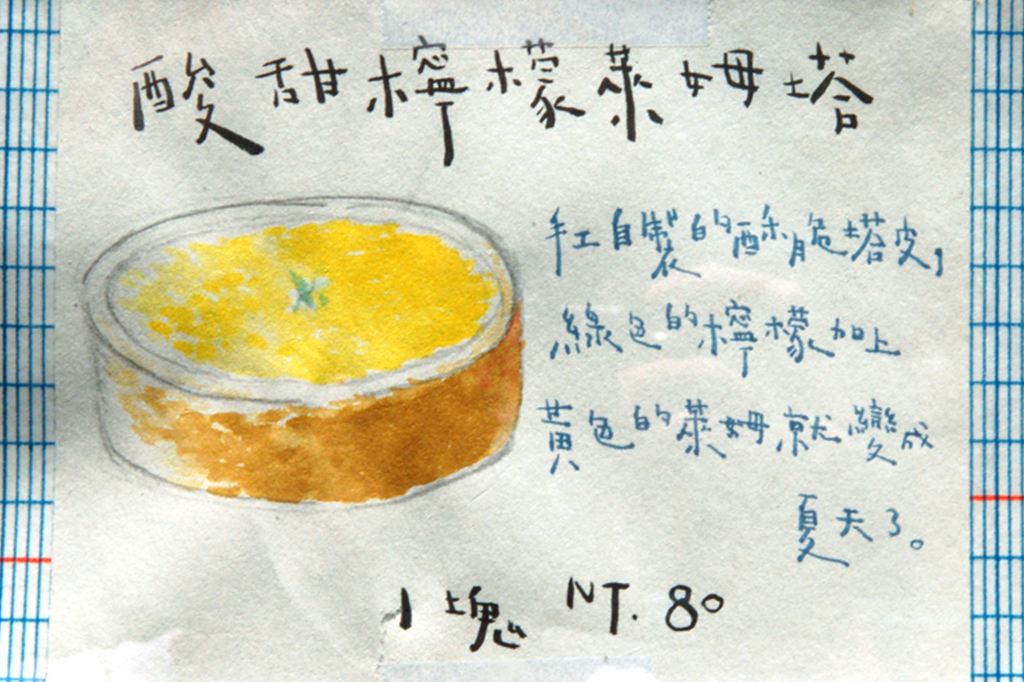 酸甜檸檬萊姆塔
手工自製的酥脆塔皮，
綠色的檸檬加上
黃色的萊姆就變成
夏天了。
1塊 NT. 80